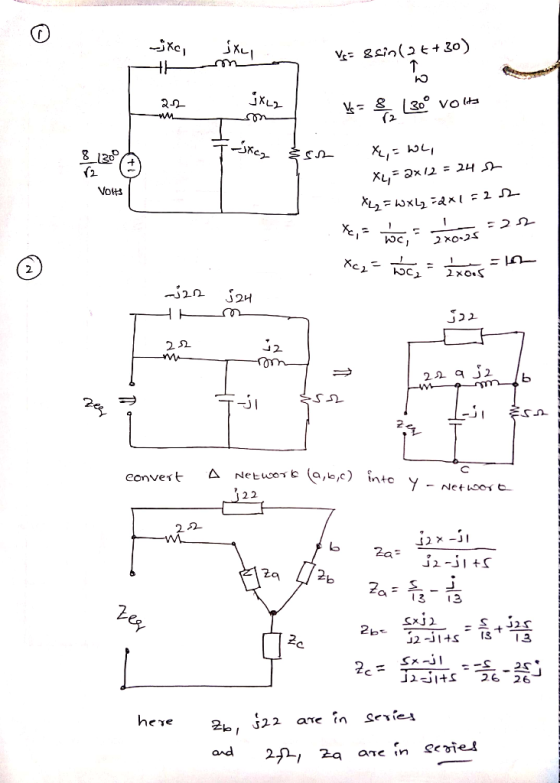 ①
-jxc1 jxL1
Vs= 8sin(2t+30)
↑
ω
2Ω jxL2
Vs= 8/√2 ∟30° Volts
-jxc2 5Ω
8/√2 ∟30°
Volts
+
-
XL1= ωL1
XL1= 2x12 = 24 Ω
XL2= ωxL2 = 2x1 = 2 Ω
Xc1= 1/ωc1 = 1/2x0.25 = 2Ω
Xc2= 1/ωc2 = 1/2x0.5 = 1Ω
②
-j2Ω j24
2Ω j2
Zeq ⇒ -j1 5Ω
⇒
j22
2Ω a j2 b
Zeq -j1 5Ω
c
convert Δ Network (a,b,c) into Y - Network
j22
2Ω
b
Za Zb
Zeq
Zc
Za= j2x-j1/j2-j1+5
Za= 5/13 - j/13
Zb= 5xj2/j2-j1+5 = 5/13 + j25/13
Zc= 5x-j1/j2-j1+5 = -5/26 - 25/26 j
here Zb, j22 are in series
and 2Ω, Za are in series